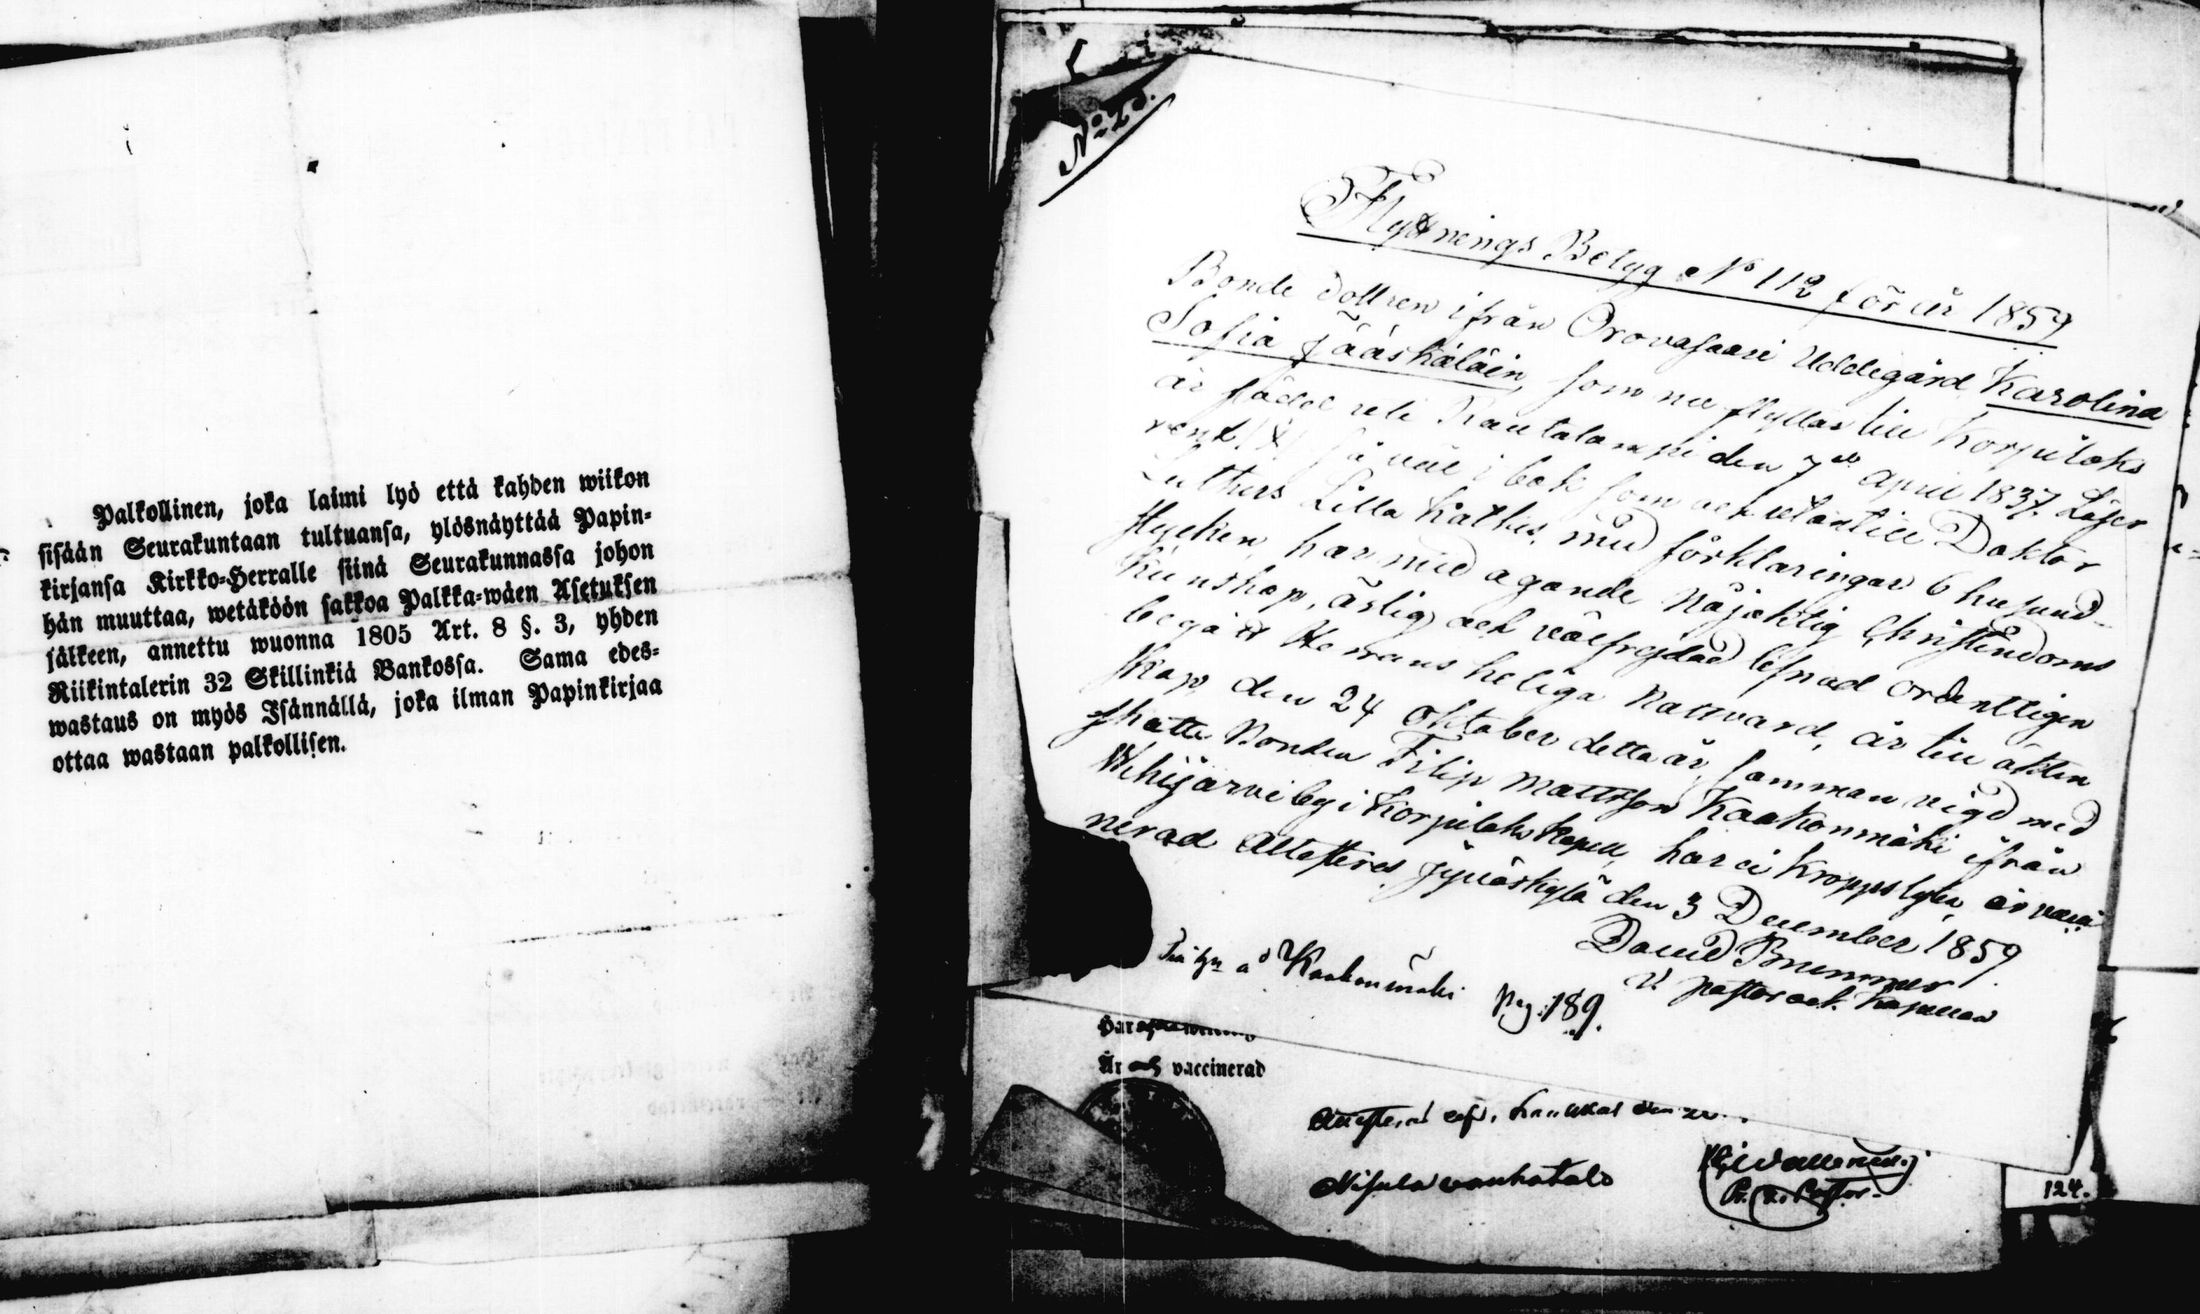 Palkollinen, joka laimi lyö että kahden wiikon
sisään Seurakuntaan tultuansa, ylösnäyttää Papin-
kirjansa Kirkko-Herralle siinä Seurakunnassa johon
hän muuttaa, wetäköön sakkoa Palkka-wäen Asetuksen
jälkeen, annettu wuonna 1805 Art. 8 §. 3, yhden
Riikintalerin 32 Skillinkiä Bankossa. Sama edes-
wastaus on myös Isännällä, joka ilman Papinkirjaa
ottaa wastaan palkollisen.
Flyttnings Betyg No 112 för år 1859
Bonde dottren ifrån Orovasaari Uddegård Karolina
Sofia Jääskäläin, som nu flyttar till Korpilaks
är född uti Rautalampi den 7de April 1837. Läser
rent så väl i bok som och utantill Doktor
Luthers Lilla Kathes. med förklaringar 6 husund-
stycken, har med ägande nöjaktig Christendoms
kunskap, ärlig och välfrejdad lefnad ordentligen
begått Herrans heliga Nattvard, är till äkten
skap den 24 Oktober detta år samman vigd med
skatte Bonden Filip Mattsson Kaakonmäki ifrån
by i Korpilaks Kapell, har ei kroppslyten, är vacci-
nerad Attesteras Jyväskylä den 3 December 1859
David Brummer
v pastor och Kapellan
Kaakonmäki Pag. 189.
Är och vaccinerad
Nisula vanhatalo
Pastor.
124.